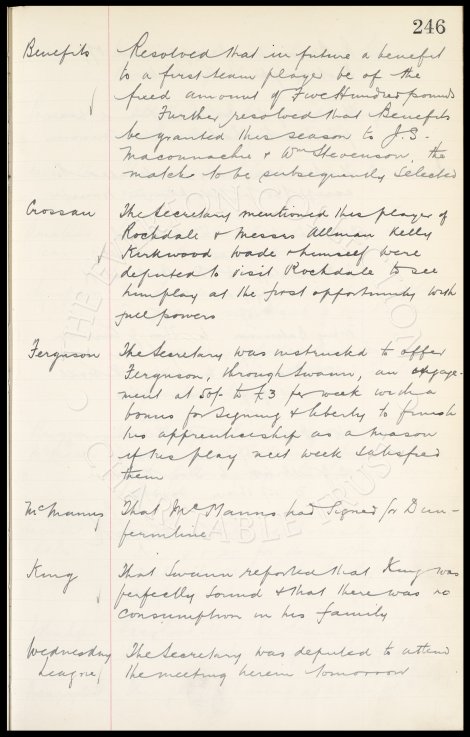 246
Benefits Resolved that in future a benefit
to a first team player be of the
fixed amount of Five Hundred pounds
Further resolved that Benefits
be granted this season to J.S.
Maconnachie & Wm Stevenson, the
match to be subsequently selected
Crossan The Secretary mentioned this player of
Rochdale & Messrs Allman Kelly
Kirkwood Wade & himself were
deputed to visit Rochdale to see
him play at the first opportunity with
full powers
Ferguson The Secretary was instructed to offer
Ferguson, through Swann, an engage-
ment at 50/- to £3 per week with a
bonus for signing & liberty to finish
his apprenticeship as a mason
if his play next week satisfied
them
McManus That McManus had signed for Dun-
fermline
King That Swann reported that King was
perfectly sound & that there was no
consumption in his family
Wednesday The Secretary was deputed to attend
League the meeting herein tomorrow
CHARITABLE TRUST